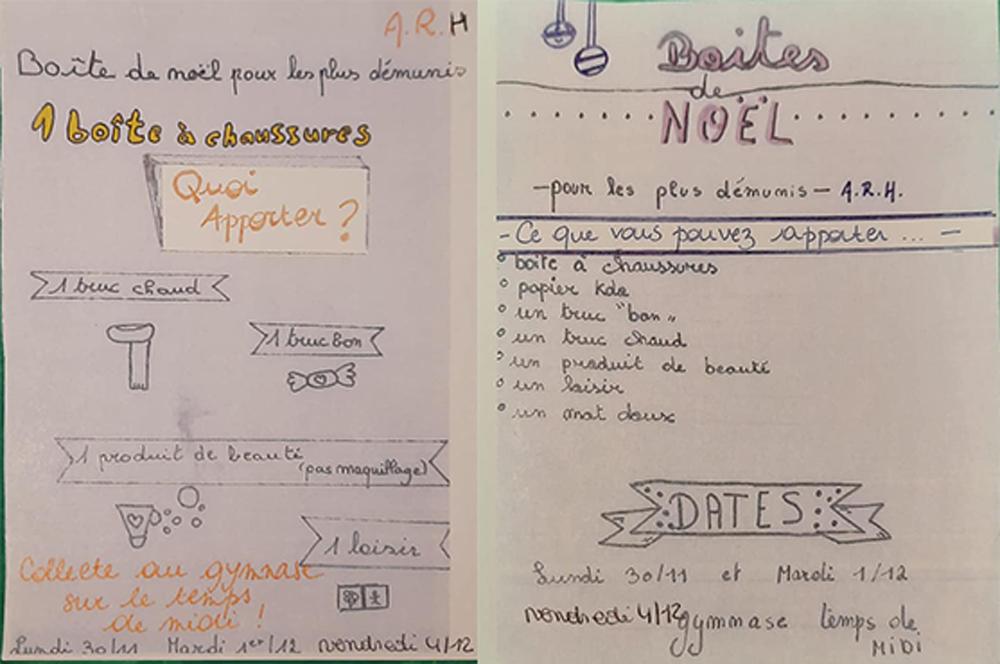 A.R.H
Boîte de noël pour les plus démunis
1 boîte à chaussures
Quoi
Apporter ?
1 truc chaud
1 truc Bon
1 produit de beauté
(pas maquillage)
1 loisir
Collecte au gymnase
sur le temps
de midi !
Lundi 30/11 Mardi 1er/12 vendredi 4/12
Boites
de
NOËL
-pour les plus démunis - A.R.H.
- Ce que vous pouvez apporter ... -
° boîte à chaussures
° papier kdo
° un truc "bon"
° un truc chaud
° un produit de beauté
° un loisir
° un mot doux
DATES
Lundi 30/11 et Mardi 1/12
vendredi 4/12 gymmase temps de
MiDi